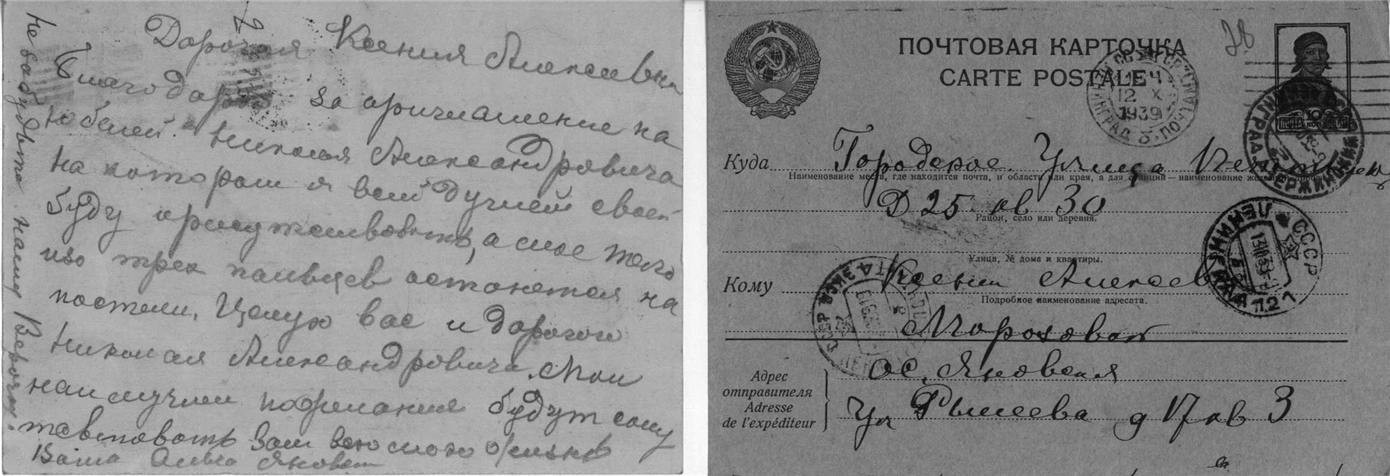 Дорогая Ксения Алексеевна
Благодарю за приглашение на
юбилей Николая Александровича
на котором я всей душей своей
буду присутствовать, а мое тело
изо трех пальцев останется на
постели. Целую вас и дорогого
Николая Александровича. Мои
наилучшие пожелания будут сопу
тствовать вам всю мою жизнь
Ваша Ольга Яновская
Не забудьте нашу Верочку.
ПОЧТОВАЯ КАРТОЧКА
CARTE POSTALE
28
12 X
1939
Куда Городское. Улица
Наименование места, где находится почта, и области или края, а для станций — наименование
Д 25 кв 30
Район, село или деревня.
Улица, № дома и квартиры.
Кому Ксении Алексеевне
Подробное наименование адресата.
Морозовой
СССР
ЛЕНИНГРАД
П.21
Адрес
отправителя
Adresse
de l'expéditeur
Ос. Яновская
ул Рылеева д 17 кв 3